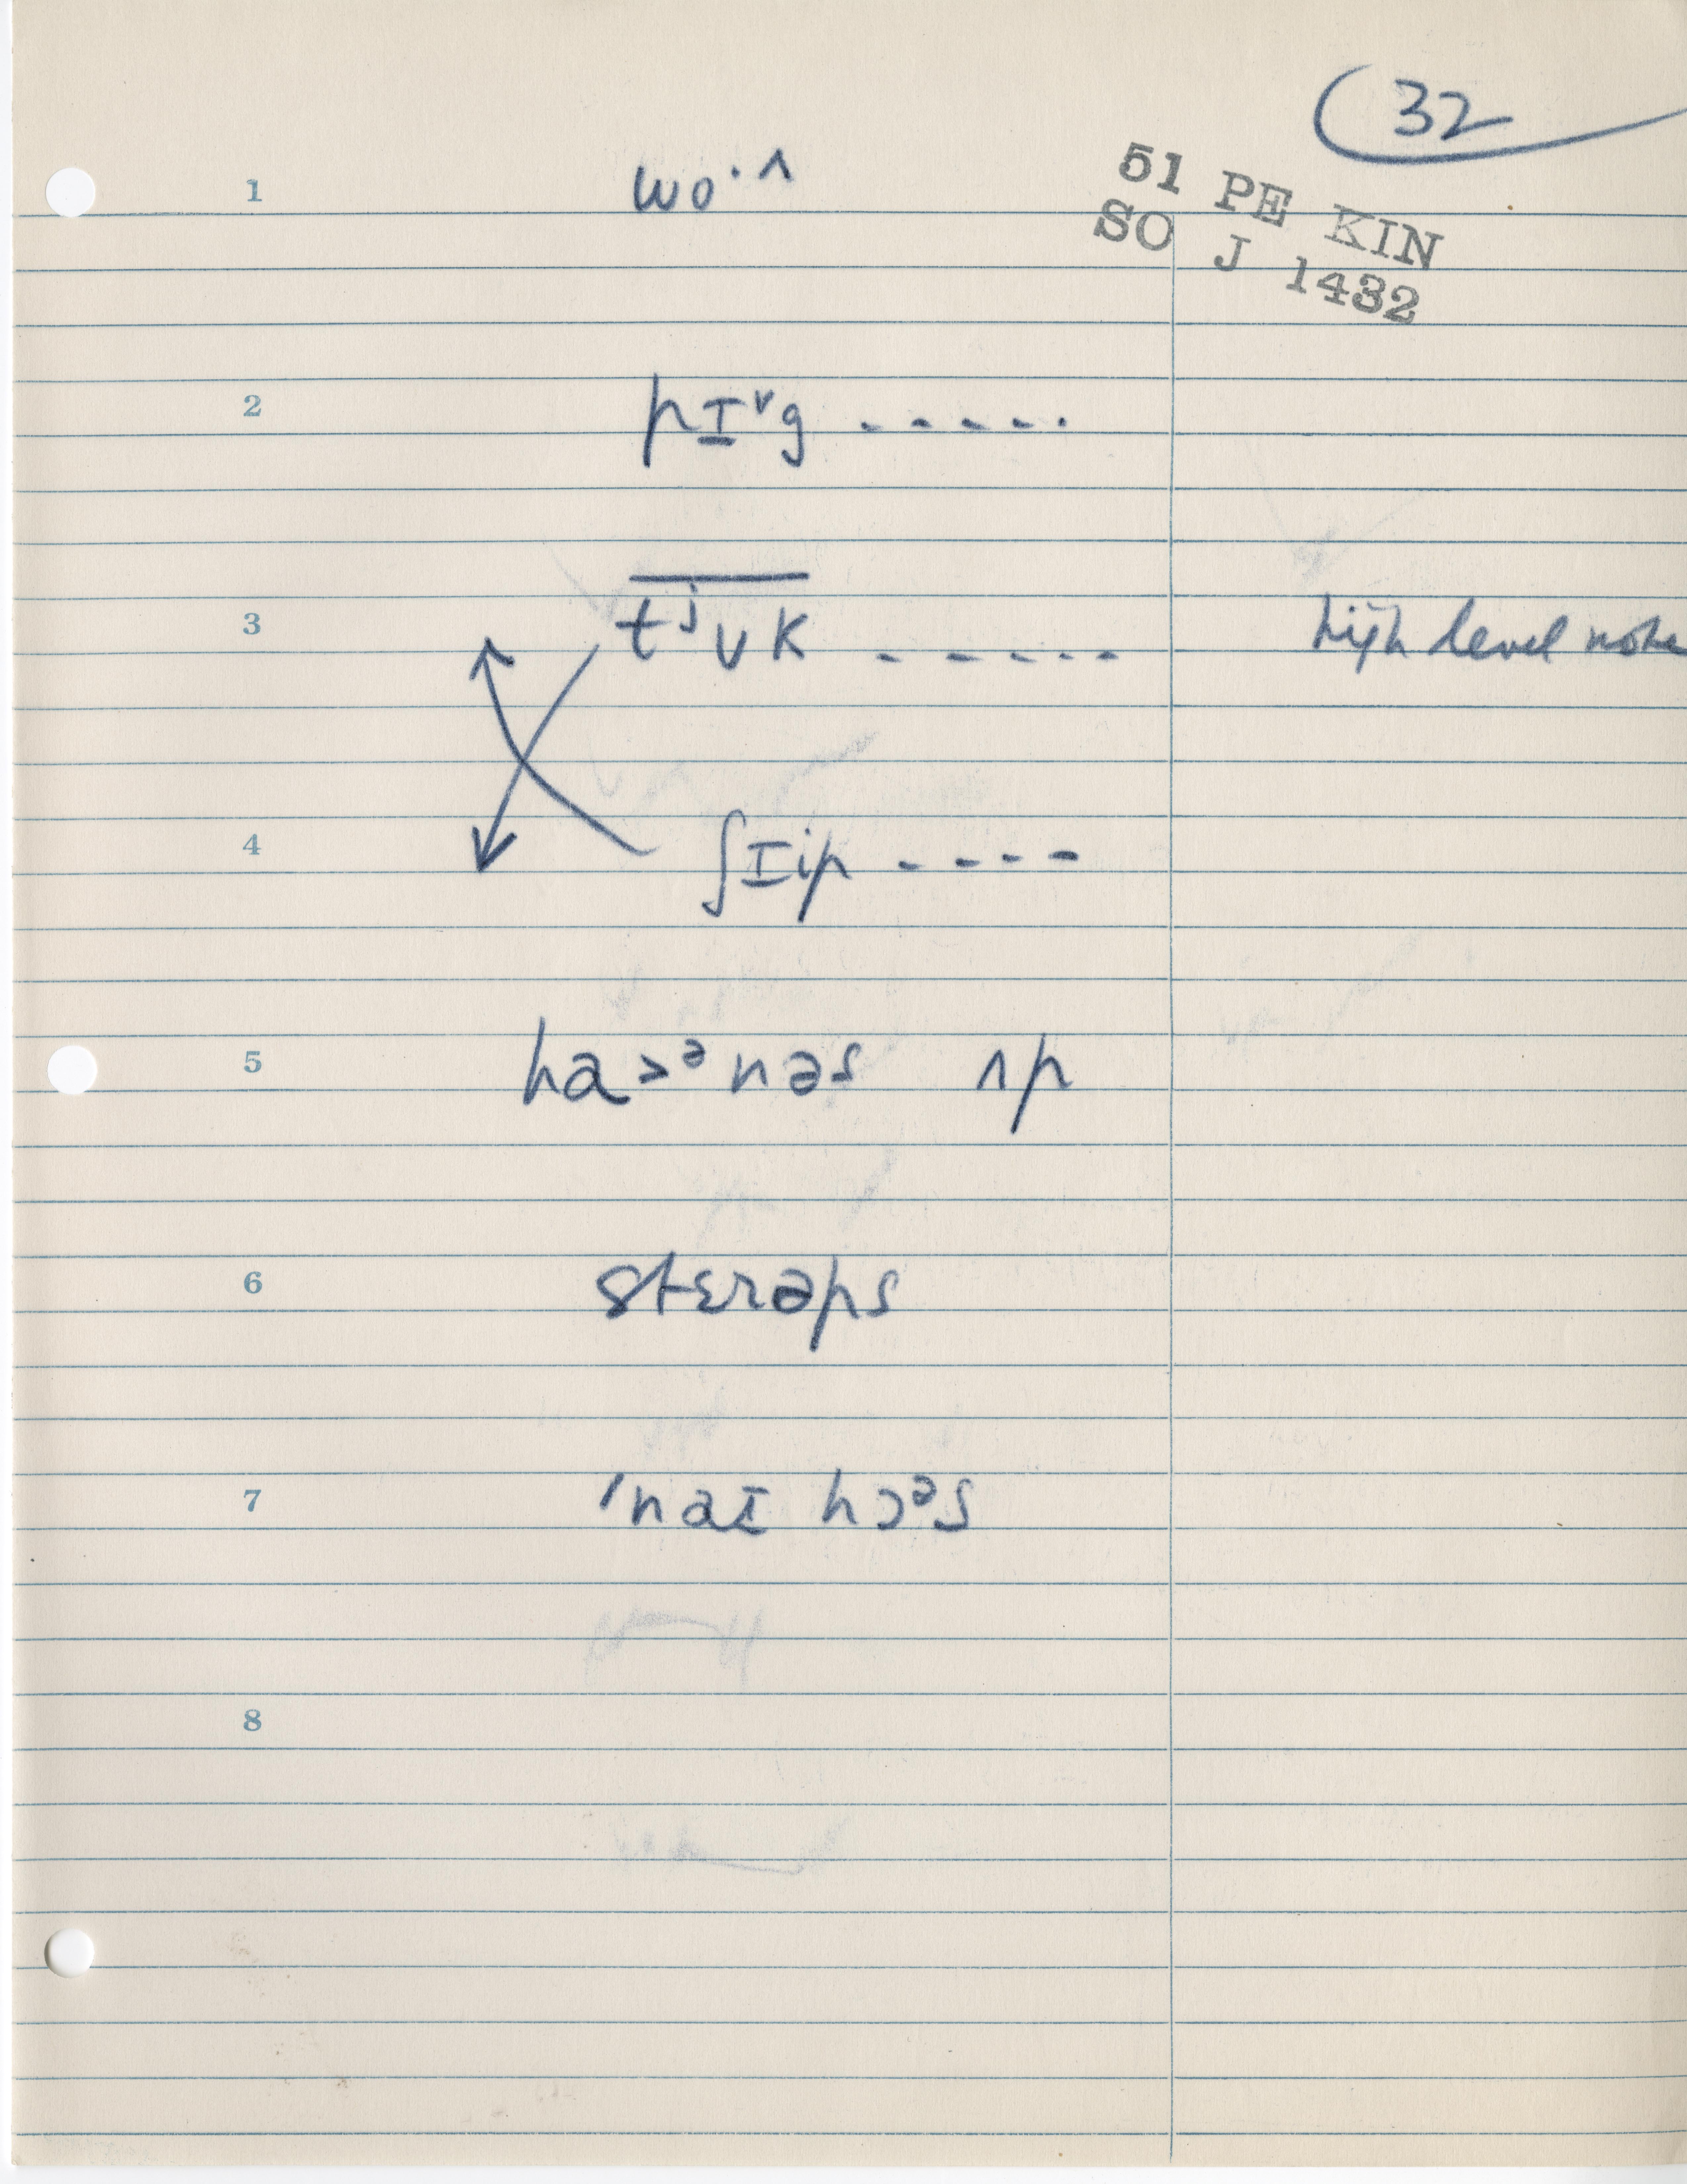 32
51 PE KIN
SO J 1432
1 wo·^
2 pɪᵛg -----
3 tʲʊk ----- high level note
4 ʃɪip ----
5 ha>ᵊnəs ʌp
6 stɛrəps
7 'naɪ hɔᵊs
8